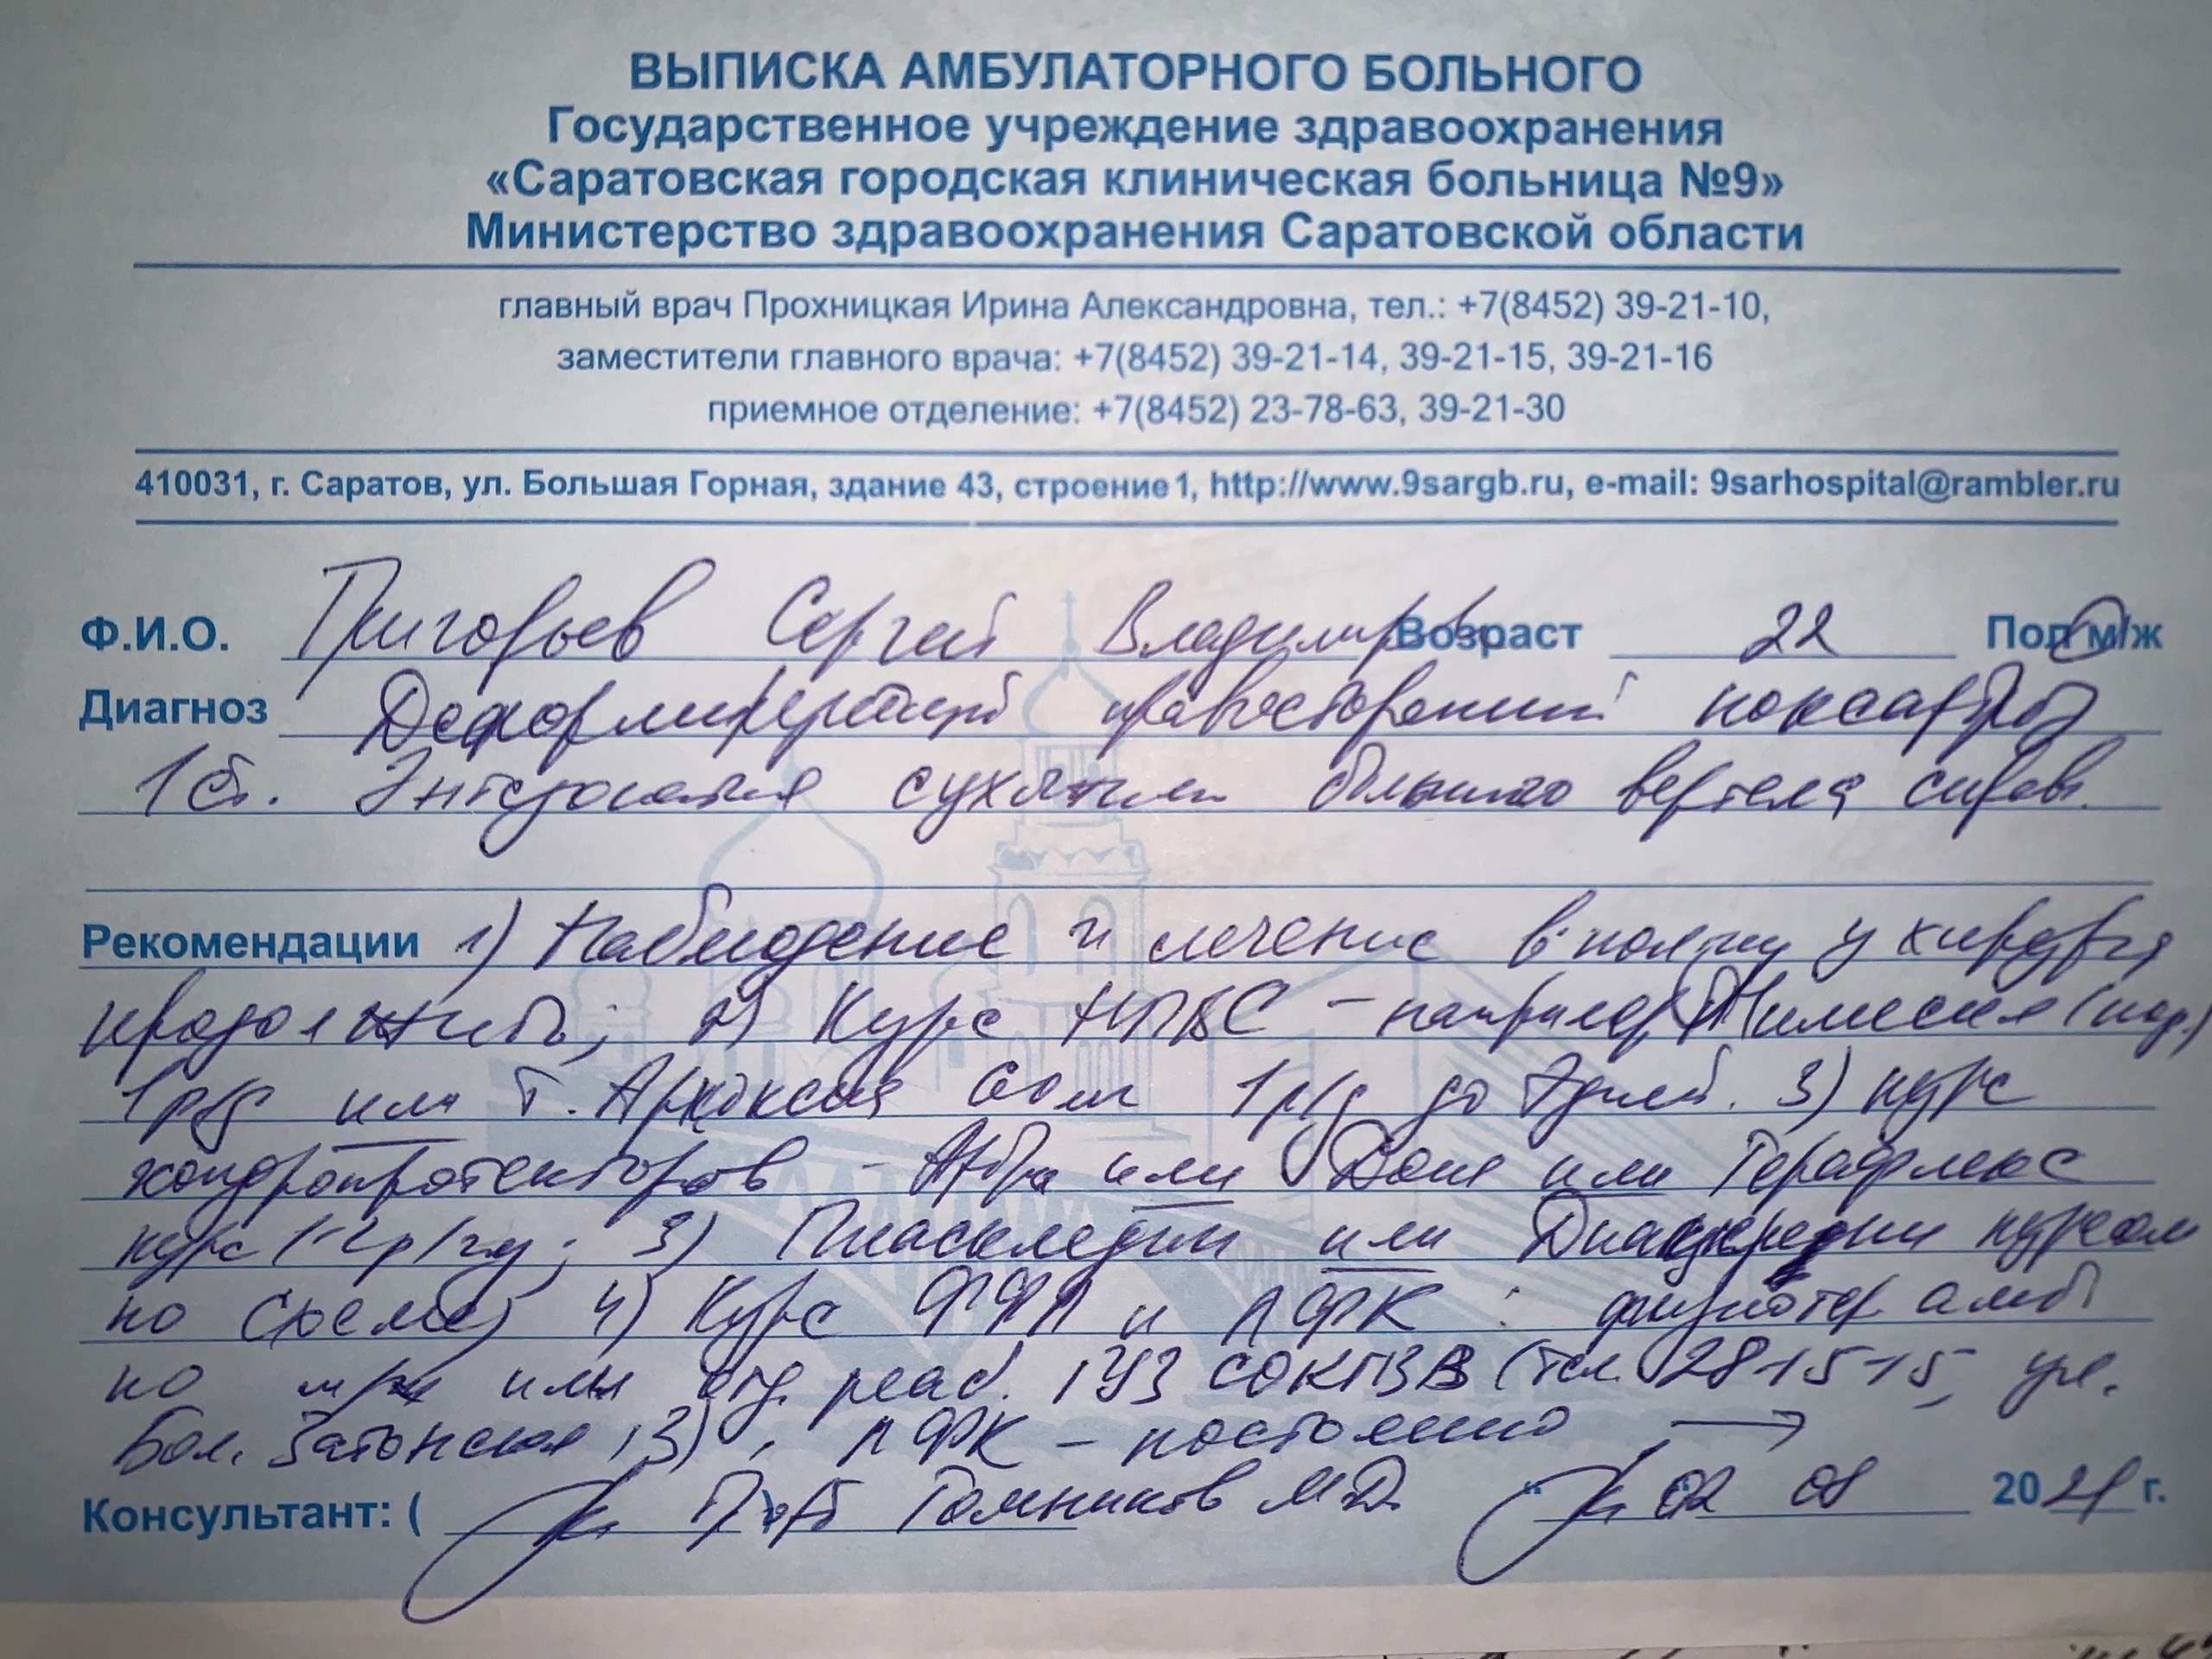 ВЫПИСКА АМБУЛАТОРНОГО БОЛЬНОГО
Государственное учреждение здравоохранения
«Саратовская городская клиническая больница №9»
Министерство здравоохранения Саратовской области
главный врач Прохницкая Ирина Александровна, тел.: +7(8452) 39-21-10,
заместители главного врача: +7(8452) 39-21-14, 39-21-15, 39-21-16
приемное отделение: +7(8452) 23-78-63, 39-21-30
410031, г. Саратов, ул. Большая Горная, здание 43, строение 1, http://www.9sargb.ru, e-mail: 9sarhospital@rambler.ru
Ф.И.О. Григорьев Сергей Владимиров. Возраст 22 Пол м/ж
Диагноз Деформирующий правосторонний коксартроз
1 ст. Энтезопатия сухожилия большого вертела справа.
Рекомендации 1) Наблюдение и лечение в пол-ку у хирурга
продолжить; 2) Курс НПВС – например Нимесил (пор.)
1 р/д или т. Аркоксиа 60 мг 1 р/д до 7 дней. 3) курс
хондропротекторов – Артра или Дона или Терафлекс
курс 1-2 р/год; 3) Пиаскледин или Диацереин курсом
по схеме; 4) Курс ФТЛ и ЛФК : физиотер. амб
по м/ж или отд. реаб. ГУЗ СОКГВВ (тел. 281515, ул.
Бол. Затонская, 3), ЛФК – постоянно →
Консультант: ( ) Проф Гомников М.Д. 02 08 2021 г.